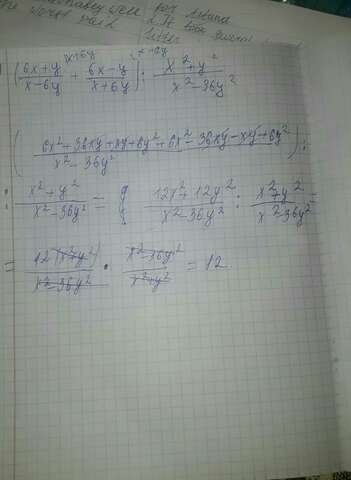 for
the worst
x+6y x-6y
(6x+y/x-6y + 6x-y/x+6y) : x²+y²/x²-36y²
(6x²+36xy+xy+6y²+6x²-36xy-xy+6y²/x²-36y²) :
: x²+y²/x²-36y² = 12x²+12y²/x²-36y² : x²+y²/x²-36y² =
= 12(x²+y²)/x²-36y² · x²-36y²/x²+y² = 12